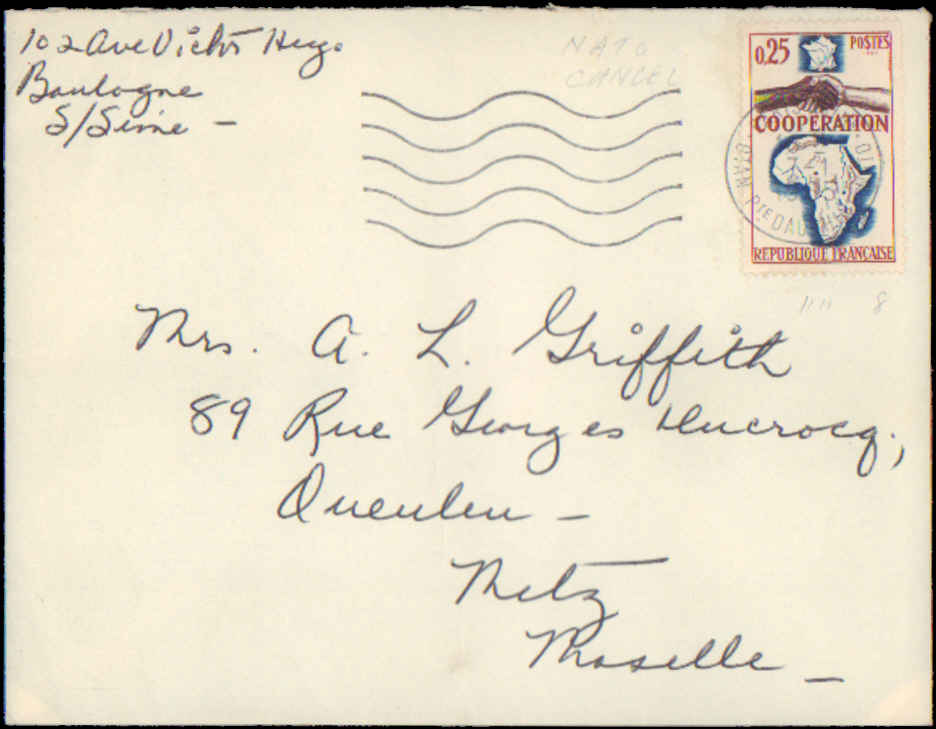 102 Ave Victor Hugo
Boulogne
S/Seine -
NATO
CANCEL
0.25 POSTES
COOPÉRATION
REPUBLIQUE FRANCAISE
Pte DAUPHINE
Mrs. A. L. Griffith
89 Rue Georges Ducrocq,
Queuleu -
Metz
Moselle -